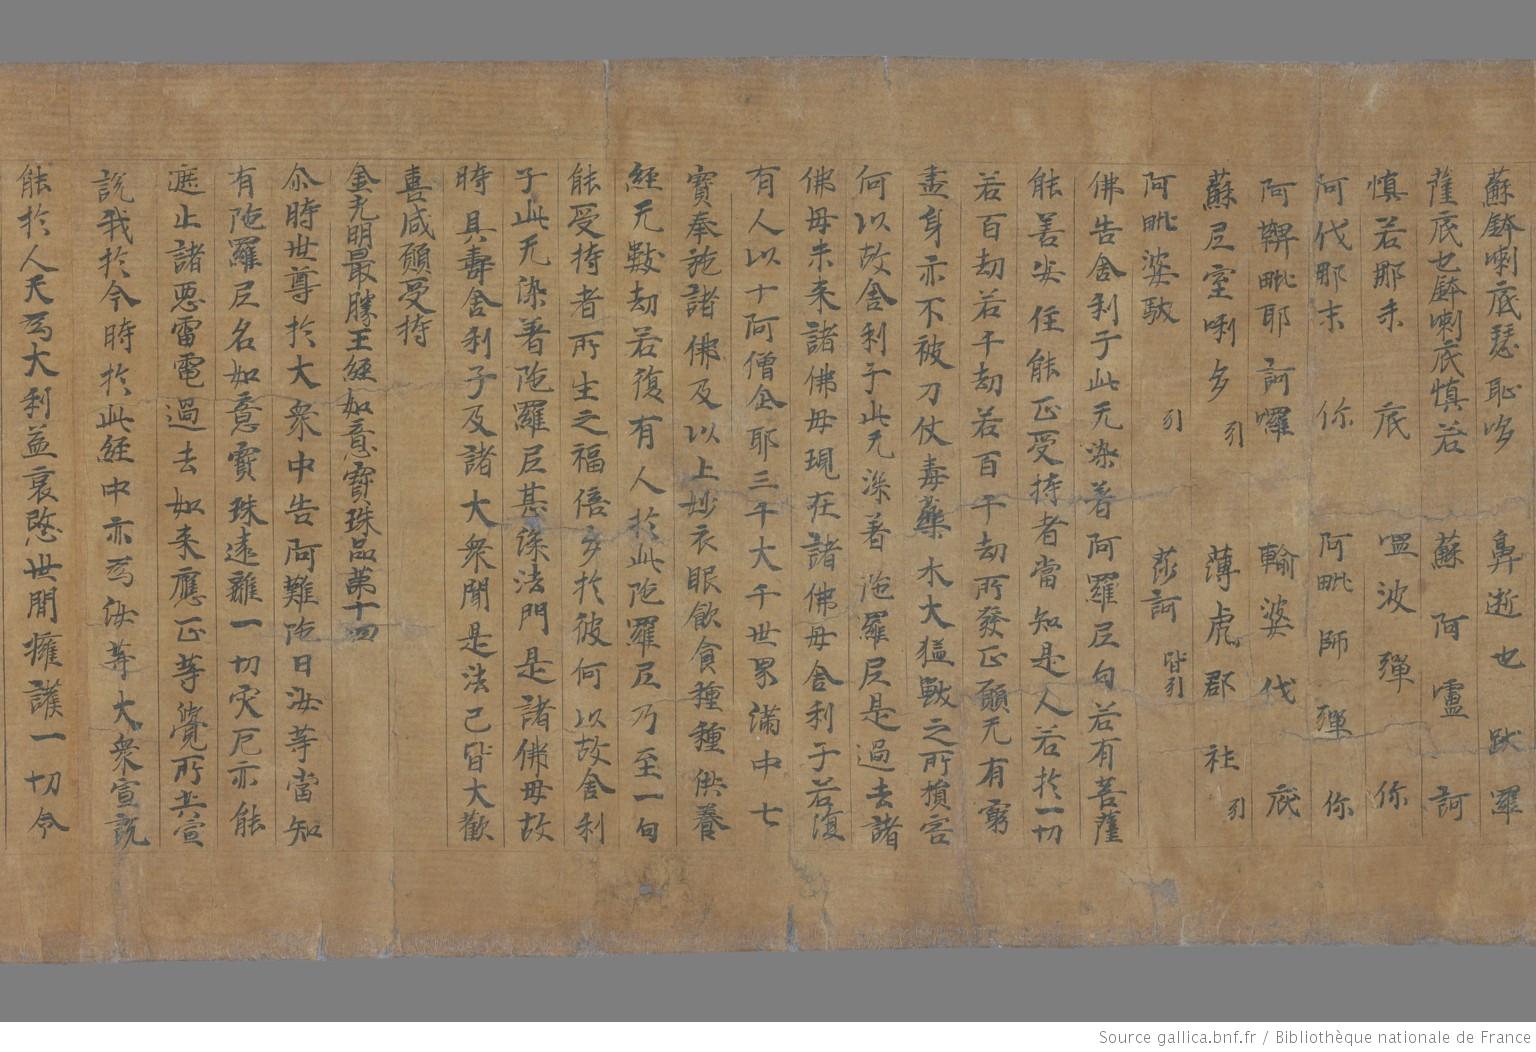 蘇鉢喇底瑟恥哆　鼻逝也　跋羅
薩底也鉢喇底慎若　蘇阿盧訶
慎若那末底　嗢波彈你
阿伐那末你　阿毗師彈你
阿鞞毗耶訶囉　輸婆伐底
蘇尼室唎多引　薄虎郡社引
阿毗婆馱引　莎訶皆引
佛告舍利子此无染著陀羅尼句若有菩薩
能善安住能正受持者當知是人若於一切
若百劫若千劫若百千劫所發正願无有窮
盡身亦不被刀仗毒藥水火猛獸之所損害
何以故舍利子此无染著陀羅尼是過去諸
佛母未來諸佛母現在諸佛母舍利子若復
有人以十阿僧企耶三千大千世界滿中七
寶奉施諸佛及以上妙衣服飲食種種供養
經无數劫若復有人於此陀羅尼乃至一句
能受持者所生之福倍多於彼何以故舍利
子此无染著陀羅尼甚深法門是諸佛母故
時具壽舍利子及諸大衆聞是法已皆大歡
喜咸願受持
金光明最勝王經如意寶珠品第十四
尒時世尊於大衆中告阿難陀曰汝等當知
有陀羅尼名如意寶珠遠離一切灾厄亦能
遮止諸惡雷電過去如來應正等覺所共宣
說我於今時於此經中亦爲汝等大衆宣說
能於人天爲大利益哀愍世間擁護一切令
Source gallica.bnf.fr / Bibliothèque nationale de France